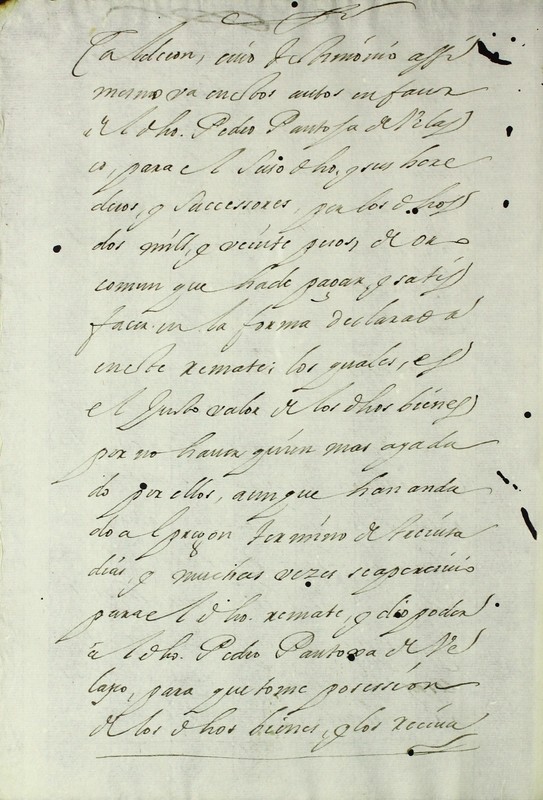 Calderon, cuio testimonio assi
mismo va en estos autos en fauor
del dho. Pedro Pantoja de Velas
co, para el suso dho, y sus here
deros, y successores, por los dhos
dos mill, y veinte pesos, de oro
comun que hade pagar, y satis
facer en la forma declarada
en este remate; los quales, es
el Justo valor de los dhos bienes
por no hauer quien mas aya da
do por ellos, aunque han anda
do al pregon termino de treinta
dias, y muchas vezes se apercivio
para el dho. remate, y dio poder
a el dho. Pedro Pantoxa de Ve
lasco, para que tome posession
de los dhos bienes, y los reciua